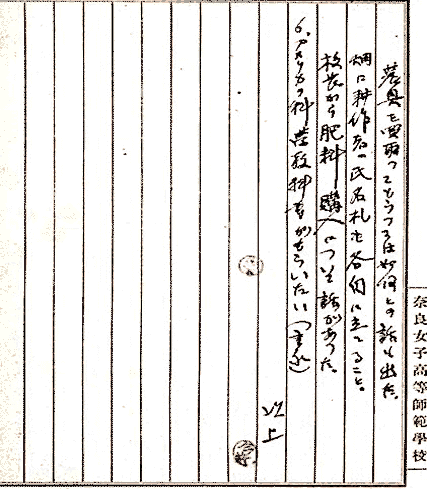 農具を買取つてもらつては如何との話も出た。
畑に耕作者の氏名札を各自に立てること。
校長から肥料購入について話があつた。
6. アメリカの科 教科書がもらいたい（重永）
以上
奈良女子高等師範學校